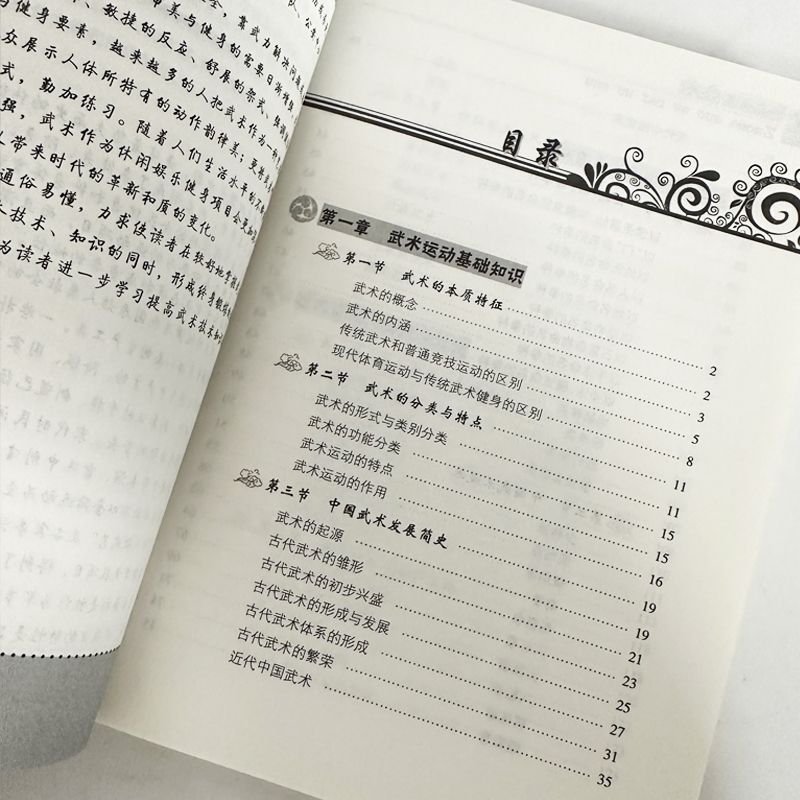 全，靠武力解决问题
美与健身的需要日渐增强
、敏捷的反应、舒展的架式、
与健身要素，越来越多的人把武术作为一种
众展示人体所特有的动作韵律美；
式，勤加练习。随着人们生活水平的不
强，武术作为休闲娱乐健身项目会更加
人带来时代的革新和质的变化。
通俗易懂，力求使读者在较好地掌握
技术、知识的同时，形成终身锻炼
为读者进一步学习提高武术技术和
目录
第一章 武术运动基础知识
第一节 武术的本质特征 2
武术的概念 2
武术的内涵 3
传统武术和普通竞技运动的区别 5
现代体育运动与传统武术健身的区别 8
第二节 武术的分类与特点 11
武术的形式与类别分类 11
武术的功能分类 15
武术运动的特点 15
武术运动的作用 16
第三节 中国武术发展简史 19
武术的起源 19
古代武术的雏形 21
古代武术的初步兴盛 23
古代武术的形成与发展 25
古代武术体系的形成 27
古代武术的繁荣 31
近代中国武术 35